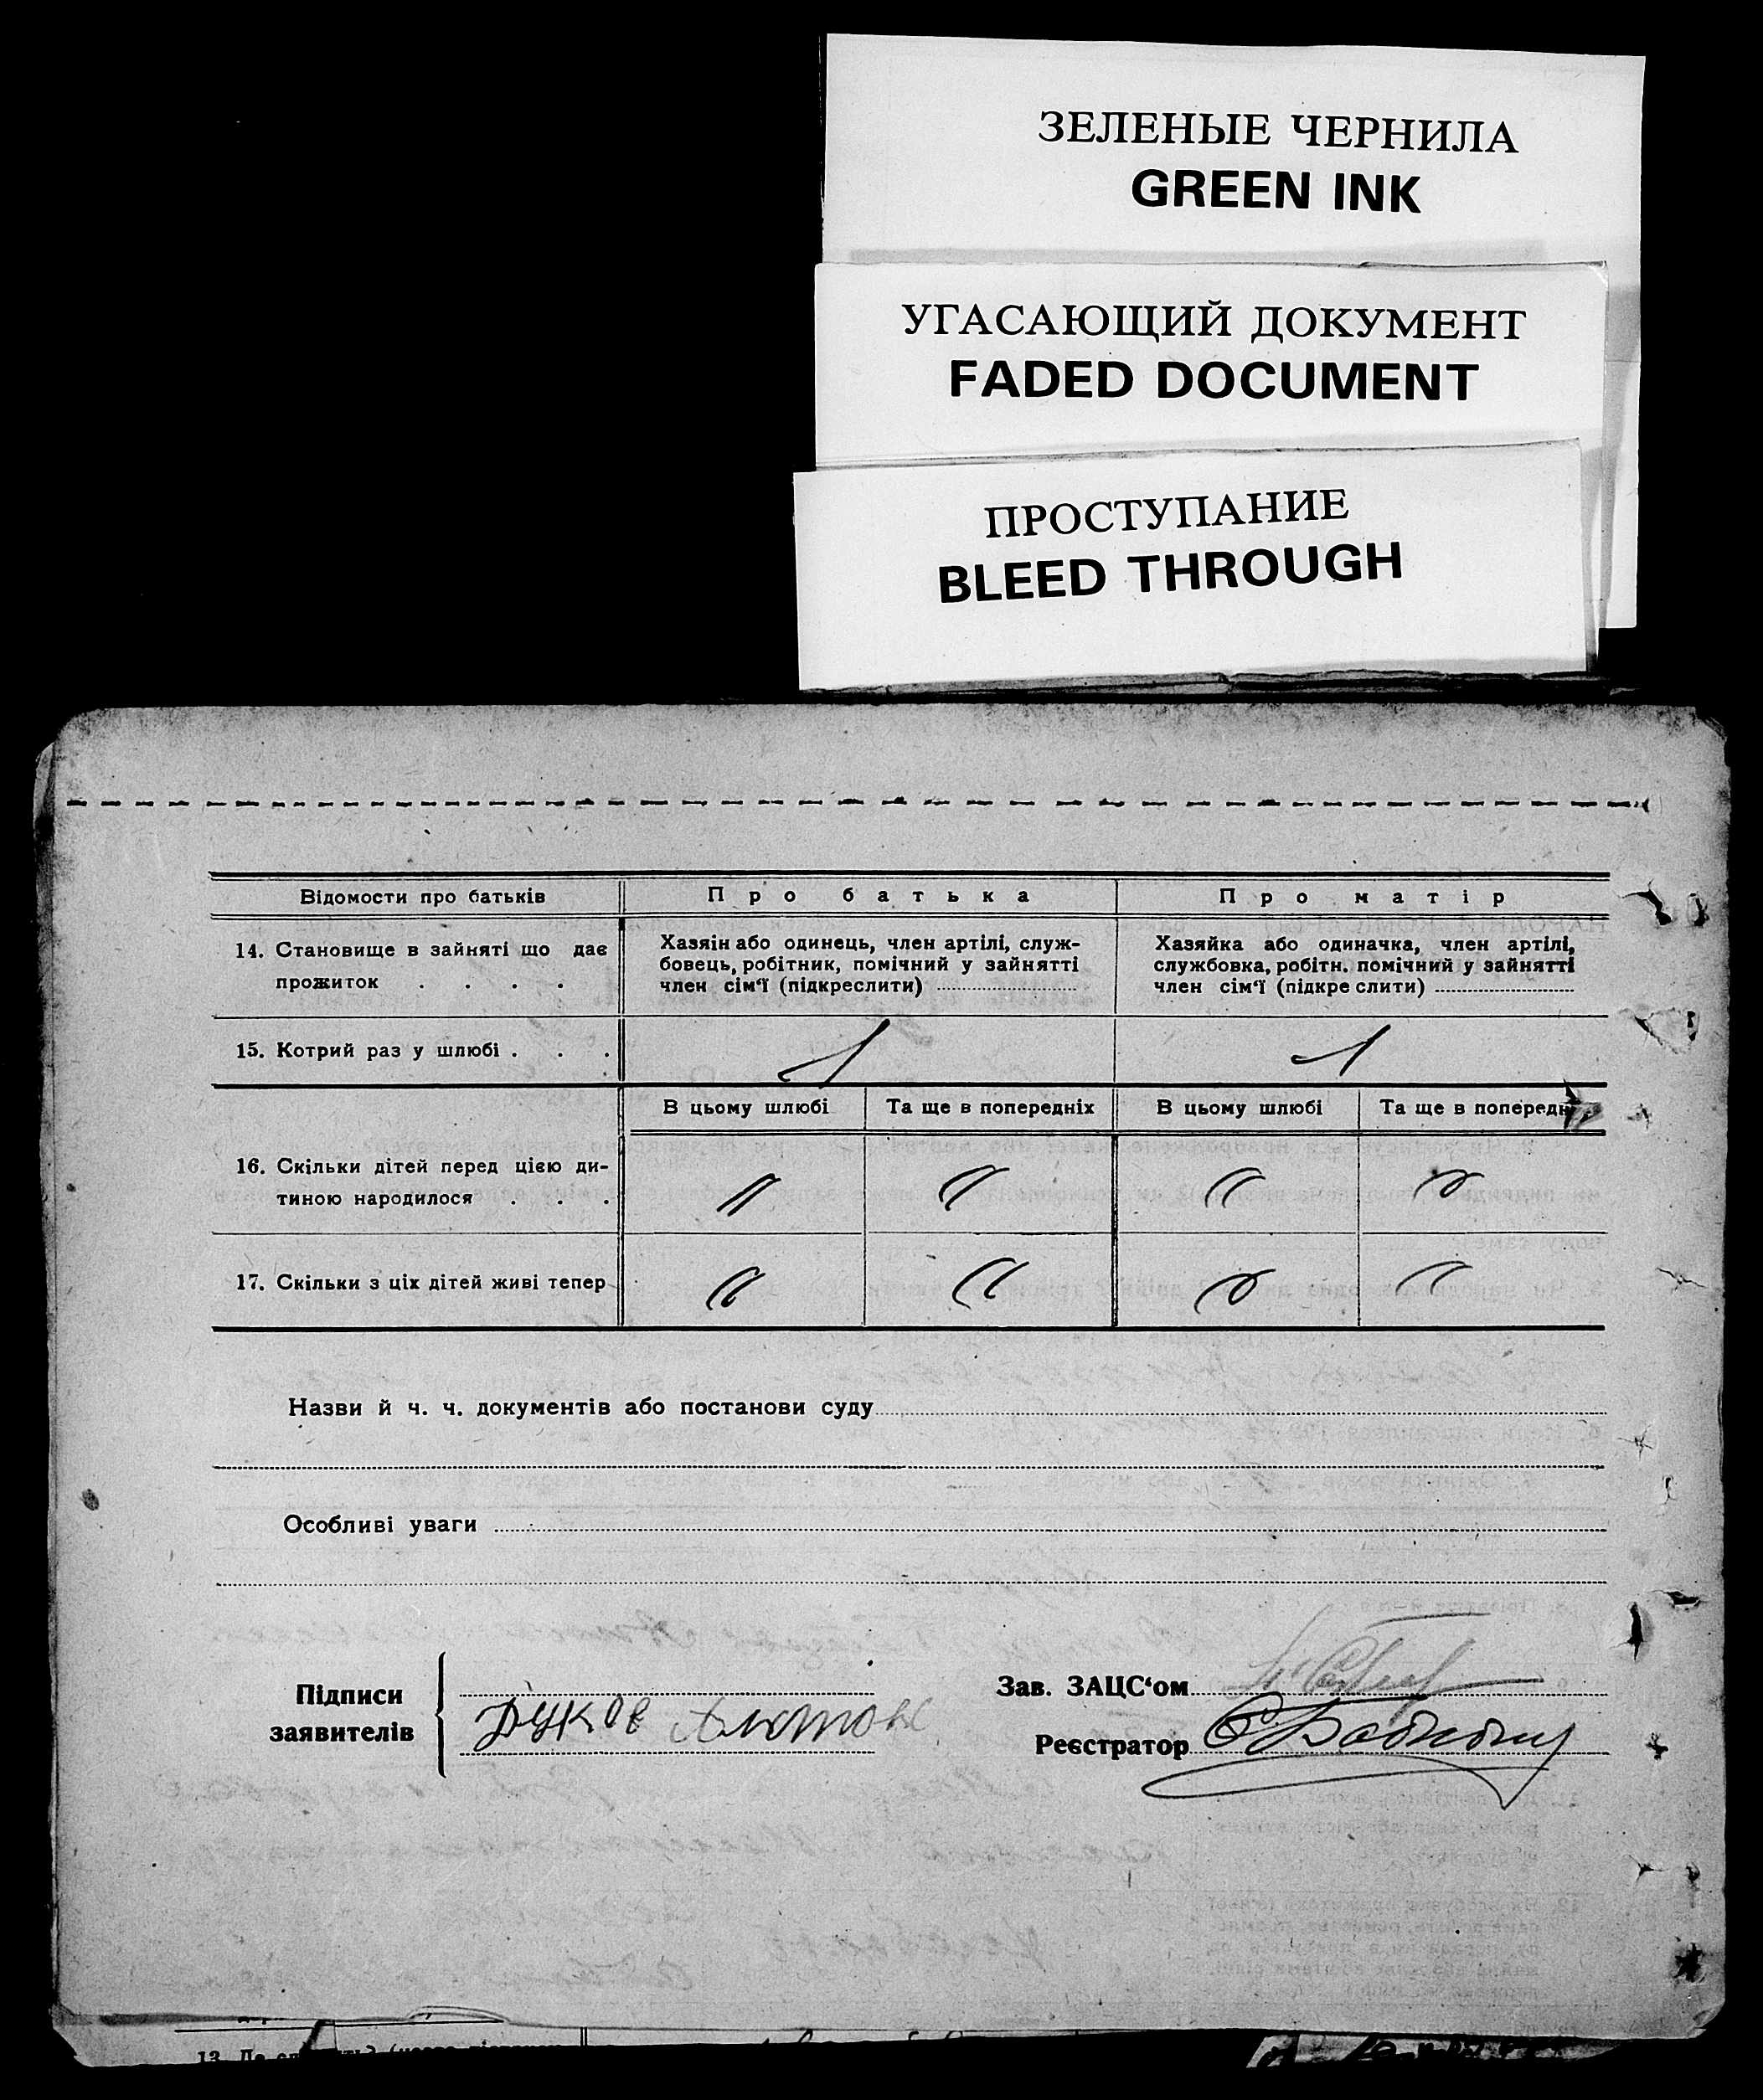 ЗЕЛЕНЫЕ ЧЕРНИЛА
GREEN INK
УГАСАЮЩИЙ ДОКУМЕНТ
FADED DOCUMENT
ПРОСТУПАНИЕ
BLEED THROUGH
Відомости про батьків Про батька Про матір
14. Становище в зайняті що дає прожиток . . . .
Хазяін або одинець, член артілі, служ-
бовець, робітник, помічний у зайнятті
член сім'ї (підкреслити)
Хазяйка або одиначка, член артілі,
службовка, робітн. помічний у зайнятті
член сім'ї (підкреслити)
15. Котрий раз у шлюбі . . . 1 1
В цьому шлюбі Та ще в попередніх В цьому шлюбі Та ще в попередн
16. Скільки дітей перед цією ди-
тиною народилося . . .
17. Скільки з ціх дітей живі тепер
Назви й ч. ч. документів або постанови суду
Особливі уваги
Підписи
заявителів
Зав. ЗАЦС'ом
Реєстратор